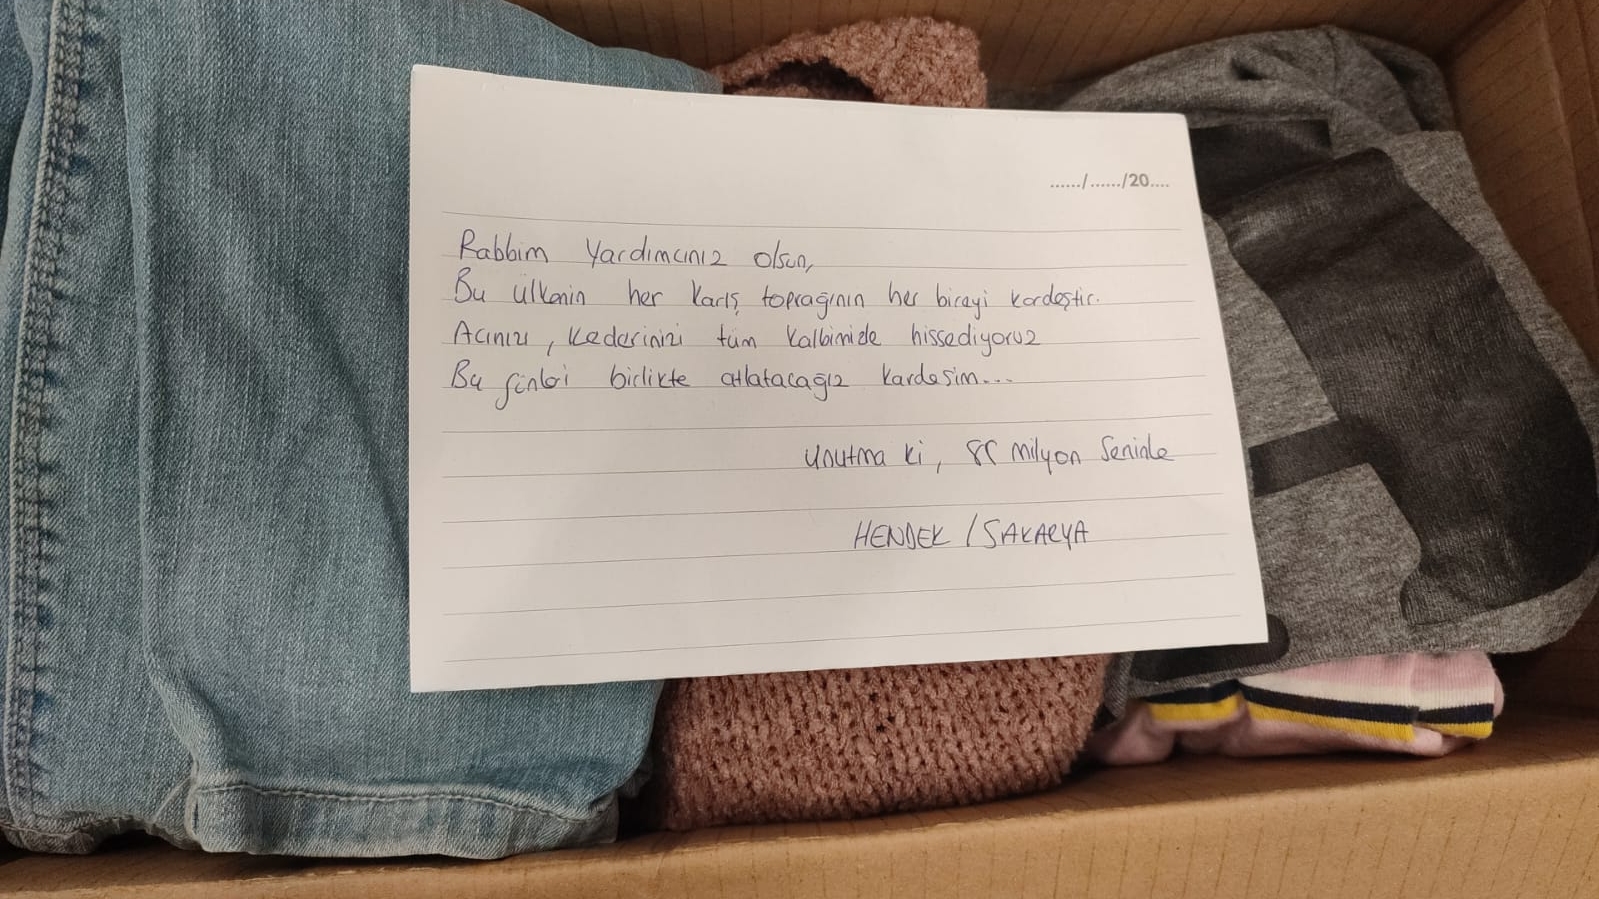 ....../....../20....
Rabbim Yardımcınız olsun,
Bu ülkenin her karış toprağının her bireyi kardeştir.
Acınızı, kederinizi tüm kalbimizle hissediyoruz
Bu günleri birlikte atlatacağız kardeşim...
Unutma ki, 85 milyon Seninle
HENDEK / SAKARYA